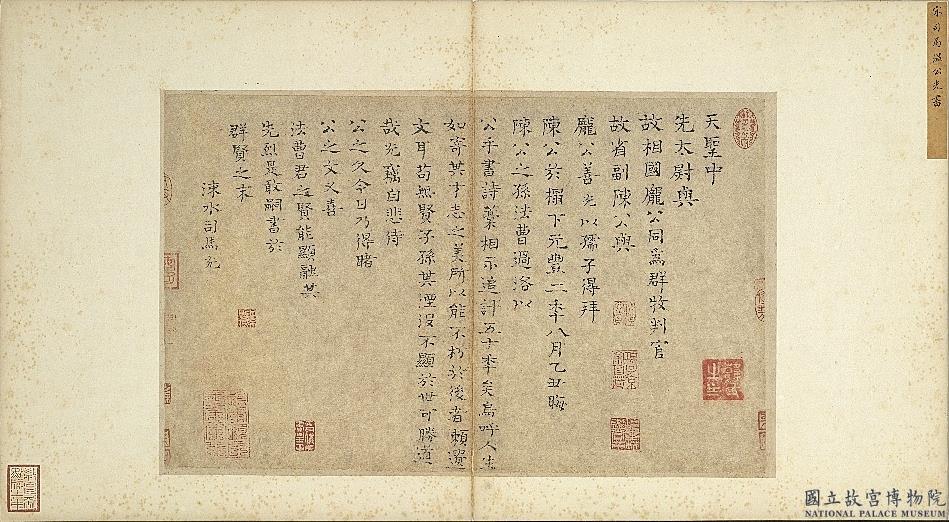 宋司馬溫公光書
天聖中
先太尉與
故相國龐公同為群牧判官
故省副陳公與
龐公善光以孺子得拜
陳公於榻下元豐二季八月乙丑晦
陳公之孫法曹過洛以
公手書詩藁相示追計五十季矣烏呼人生
如寄其才志之美所以能不朽於後者賴遺
文耳苟無賢子孫其湮沒不顯於世可勝道
哉光竊自悲侍
公之久今日乃得睹
公之文又喜
法曹君之賢能顯融其
先烈是敢嗣書於
群賢之末
涑水司馬光
國立故宮博物院
NATIONAL PALACE MUSEUM